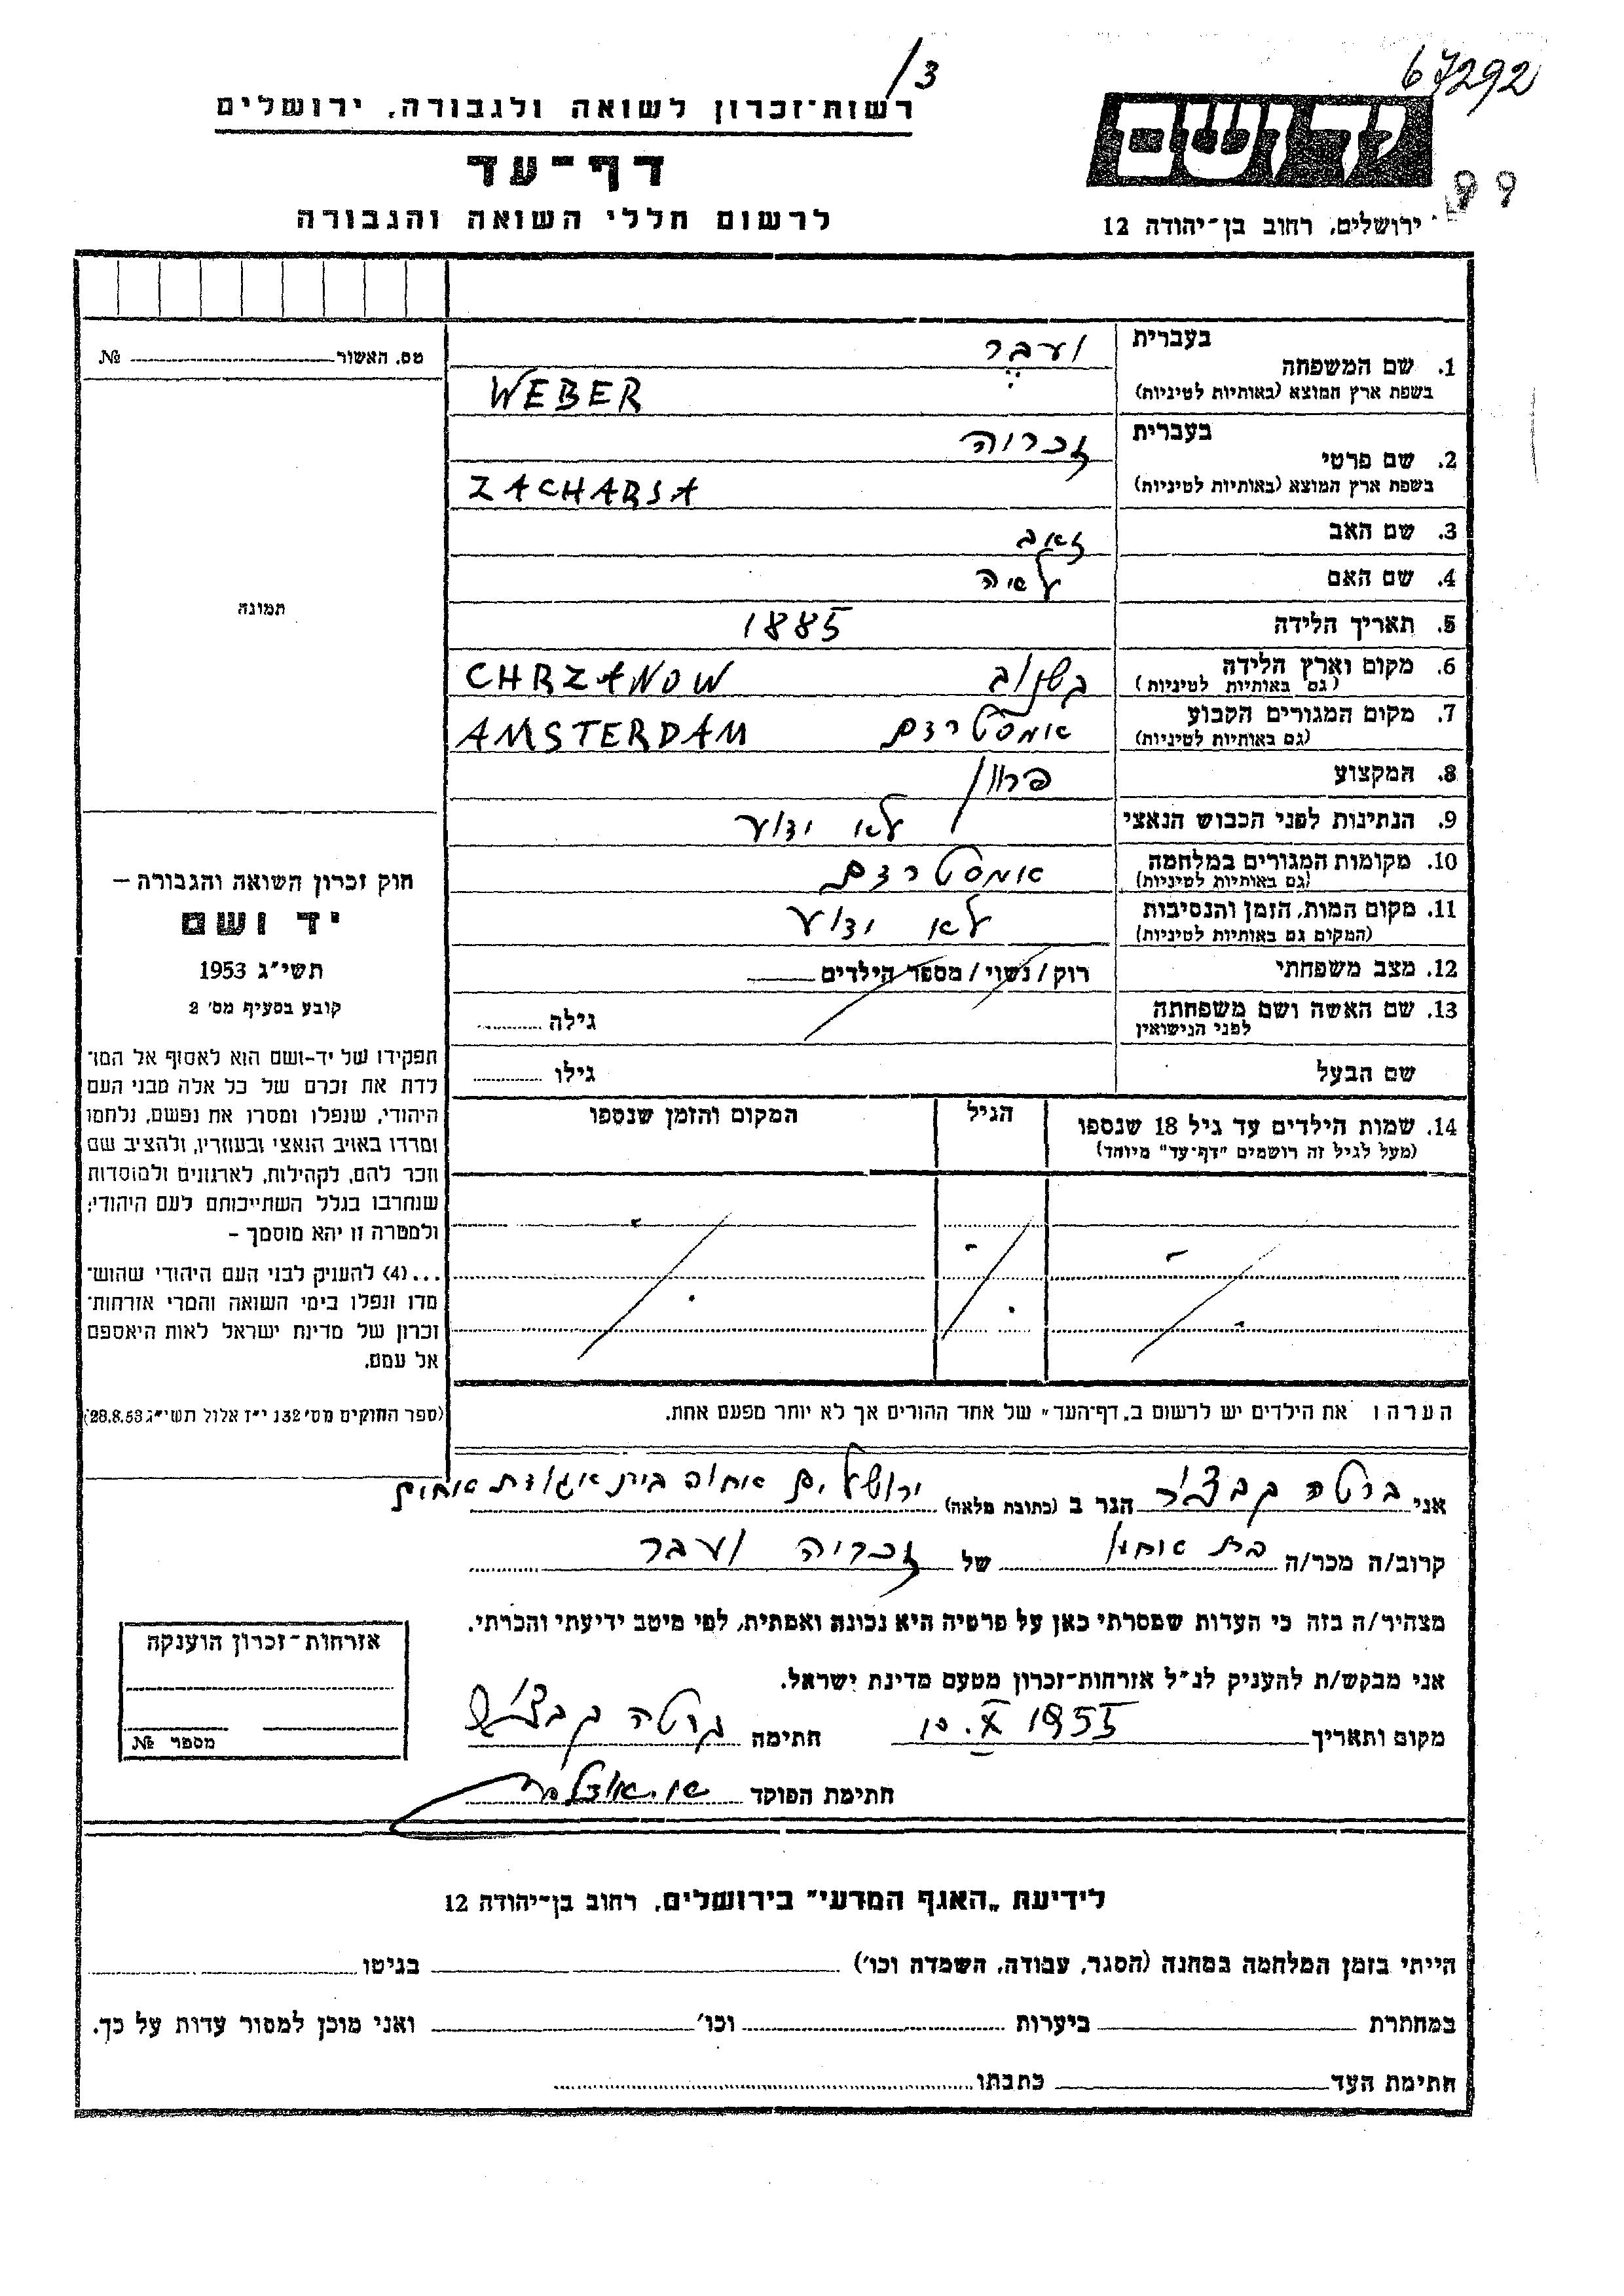 67292
/3
רשות־זכרון לשואה ולגבורה, ירושלים
דף־עד
לרשום חללי השואה והגבורה
ידושם
99
ירושלים, רחוב בן־יהודה 12
בעברית ועבר
1. שם המשפחה
בשפת ארץ המוצא (באותיות לטיניות) WEBER
בעברית זכריה
2. שם פרטי
בשפת ארץ המוצא (באותיות לטיניות) ZACHARJA
3. שם האב זאב
4. שם האם לאה
5. תאריך הלידה 1885
6. מקום וארץ הלידה CHRZANOW
(גם באותיות לטיניות)
7. מקום המגורים הקבוע אמסטרדם AMSTERDAM
(גם באותיות לטיניות)
8. המקצוע
9. הנתינות לפני הכבוש הנאצי לא ידוע
10. מקומות המגורים במלחמה אמסטרדם
(גם באותיות לטיניות)
11. מקום המות, הזמן והנסיבות לא ידוע
(המקום גם באותיות לטיניות)
12. מצב משפחתי רוק/נשוי/מספר הילדים
13. שם האשה ושם משפחתה גילה
לפני הנישואין
שם הבעל גילו
14. שמות הילדים עד גיל 18 שנספו הגיל המקום והזמן שנספו
(מעל לגיל זה רושמים "דף־עד" מיוחד)
הערה: את הילדים יש לרשום ב„דף־העד" של אחד ההורים אך לא יותר מפעם אחת.
מס. האשור №
תמונה
חוק זכרון השואה והגבורה –
יד ושם
תשי״ג 1953
קובע בסעיף מס׳ 2
תפקידו של יד-ושם הוא לאסוף אל המו־
לדת את זכרם של כל אלה מבני העם
היהודי, שנפלו ומסרו את נפשם, נלחמו
ומרדו באויב הנאצי ובעוזריו, ולהציב שם
וזכר להם, לקהילות, לארגונים ולמוסדות
שנחרבו בגלל השתייכותם לעם היהודי;
ולמטרה זו יהא מוסמך –
...(4) להעניק לבני העם היהודי שהוש־
מדו ונפלו בימי השואה והמרי אזרחות־
זכרון של מדינת ישראל לאות היאספם
אל עמם.
(ספר החוקים מס׳ 132 י״ז אלול תשי״ג 28.8.53)
אני ברטה הגר ב (כתובת מלאה) ירושלים אחוה בית אגודת
קרוב/ה מכר/ה בת של זכריה ועבר
מצהיר/ה בזה כי העדות שמסרתי כאן על פרטיה היא נכונה ואמתית, לפי מיטב ידיעתי והכרתי.
אני מבקש/ת להעניק לנ״ל אזרחות־זכרון מטעם מדינת ישראל.
מקום ותאריך 10.X 1955 חתימה ברטה
חתימת הפוקד
אזרחות־זכרון הוענקה
מספר №
לידיעת „האגף המדעי" בירושלים, רחוב בן־יהודה 12
הייתי בזמן המלחמה במחנה (הסגר, עבודה, השמדה וכו׳) בגיטו
במחתרת ביערות וכו׳ ואני מוכן למסור עדות על כך.
חתימת העד כתבתו